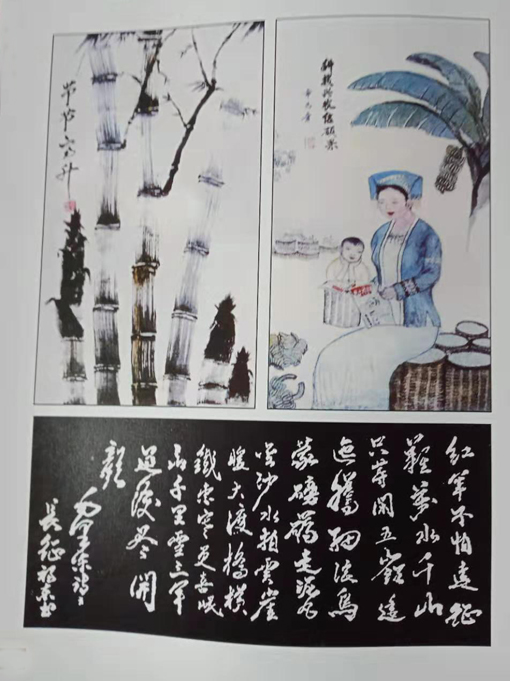 节节高升
科技兴农结硕果
红军不怕远征
难万水千山
只等闲五岭逶
迤腾细浪乌
蒙磅礴走泥丸
金沙水拍云崖
暖大渡桥横
铁索寒更喜岷
山千里雪三军
过后尽开
颜
毛泽东诗
长征